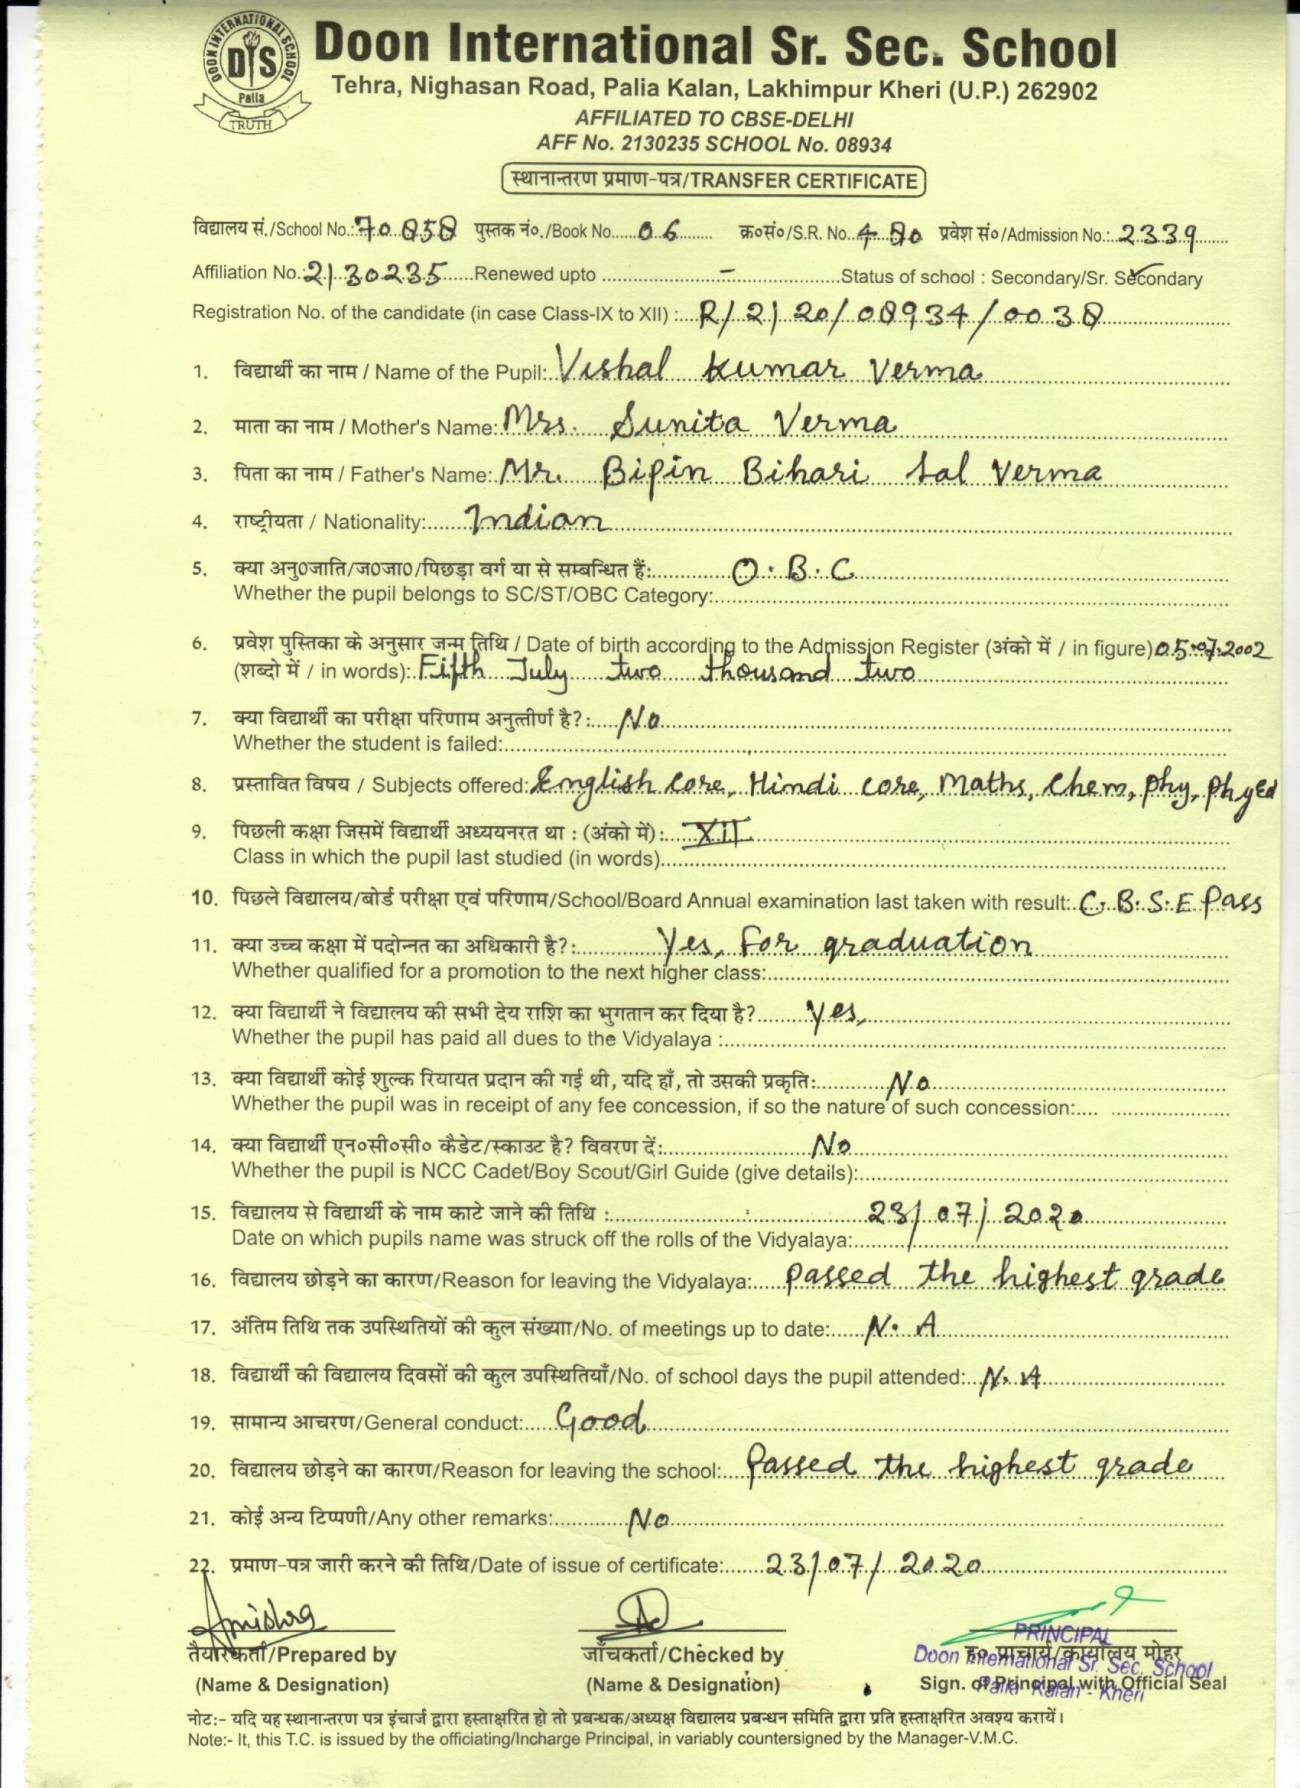 DOON INTERNATIONAL SCHOOL
DIS
Palia
TRUTH
Doon International Sr. Sec. School
Tehra, Nighasan Road, Palia Kalan, Lakhimpur Kheri (U.P.) 262902
AFFILIATED TO CBSE-DELHI
AFF No. 2130235 SCHOOL No. 08934
स्थानान्तरण प्रमाण-पत्र/TRANSFER CERTIFICATE
विद्यालय सं./School No.: 70858 पुस्तक नं०./Book No. 06 क्र०सं०/S.R. No. 480 प्रवेश सं०/Admission No.: 2339
Affiliation No.: 2130235 Renewed upto - Status of school : Secondary/Sr. Secondary
Registration No. of the candidate (in case Class-IX to XII) : R/2/20/08934/0038
1. विद्यार्थी का नाम / Name of the Pupil: Vishal Kumar Verma
2. माता का नाम / Mother's Name: Mrs. Sunita Verma
3. पिता का नाम / Father's Name: Mr. Bipin Bihari Lal Verma
4. राष्ट्रीयता / Nationality: Indian
5. क्या अनु0जाति/ज0जा0/पिछड़ा वर्ग या से सम्बन्धित हैं: O.B.C
Whether the pupil belongs to SC/ST/OBC Category:
6. प्रवेश पुस्तिका के अनुसार जन्म तिथि / Date of birth according to the Admission Register (अंको में / in figure) 05.07.2002
(शब्दो में / in words): Fifth July two thousand two
7. क्या विद्यार्थी का परीक्षा परिणाम अनुत्तीर्ण है?: No
Whether the student is failed:
8. प्रस्तावित विषय / Subjects offered: English core, Hindi core, Maths, Chem, Phy, PhyEd
9. पिछली कक्षा जिसमें विद्यार्थी अध्ययनरत था : (अंको में): XII
Class in which the pupil last studied (in words)
10. पिछले विद्यालय/बोर्ड परीक्षा एवं परिणाम/School/Board Annual examination last taken with result: C.B.S.E Pass
11. क्या उच्च कक्षा में पदोन्नत का अधिकारी है?: Yes, For graduation
Whether qualified for a promotion to the next higher class:
12. क्या विद्यार्थी ने विद्यालय की सभी देय राशि का भुगतान कर दिया है? Yes,
Whether the pupil has paid all dues to the Vidyalaya :
13. क्या विद्यार्थी कोई शुल्क रियायत प्रदान की गई थी, यदि हाँ, तो उसकी प्रकृति: No
Whether the pupil was in receipt of any fee concession, if so the nature of such concession:
14. क्या विद्यार्थी एन०सी०सी० कैडेट/स्काउट है? विवरण दें: No
Whether the pupil is NCC Cadet/Boy Scout/Girl Guide (give details):
15. विद्यालय से विद्यार्थी के नाम काटे जाने की तिथि : 23/07/2020
Date on which pupils name was struck off the rolls of the Vidyalaya:
16. विद्यालय छोड़ने का कारण/Reason for leaving the Vidyalaya: Passed the highest grade
17. अंतिम तिथि तक उपस्थितियों की कुल संख्याा/No. of meetings up to date: N.A
18. विद्यार्थी की विद्यालय दिवसों की कुल उपस्थितियाँ/No. of school days the pupil attended: N.A
19. सामान्य आचरण/General conduct: Good
20. विद्यालय छोड़ने का कारण/Reason for leaving the school: Passed the highest grade
21. कोई अन्य टिप्पणी/Any other remarks: No
22. प्रमाण-पत्र जारी करने की तिथि/Date of issue of certificate: 23/07/2020
तैयारकर्ता/Prepared by जाँचकर्ता/Checked by ह० प्राचार्य/कार्यालय मोहर
(Name & Designation) (Name & Designation) Sign. of Principal with Official Seal
PRINCIPAL
Doon International Sr. Sec. School
Palia Kalan - Kheri
नोट:- यदि यह स्थानान्तरण पत्र इंचार्ज द्वारा हस्ताक्षरित हो तो प्रबन्धक/अध्यक्ष विद्यालय प्रबन्धन समिति द्वारा प्रति हस्ताक्षरित अवश्य करायें।
Note:- It, this T.C. is issued by the officiating/Incharge Principal, in variably countersigned by the Manager-V.M.C.